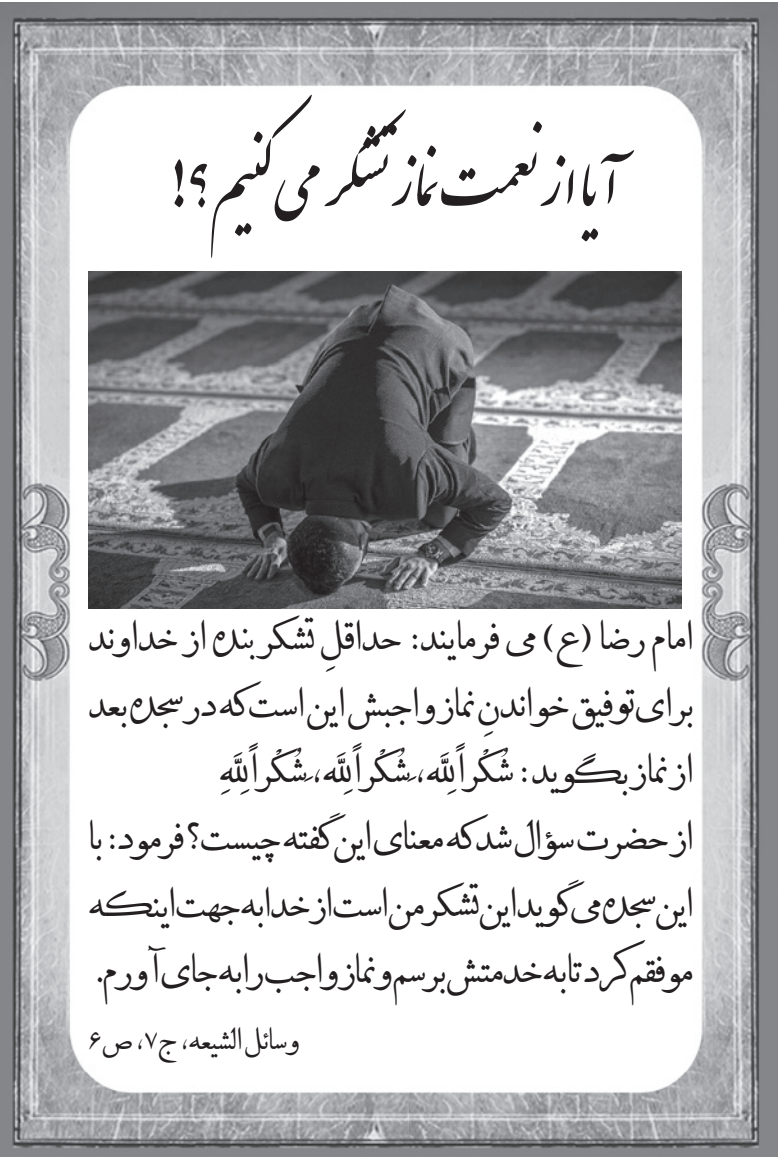 آیا از نعمت نماز تشکر می کنیم ؟!
امام رضا (ع) می فرمایند: حداقلِ تشکر بنده از خداوند
برای توفیق خواندنِ نماز واجبش این است که در سجده بعد
از نماز بگوید: شُکْراً لِلَّه، شُکْراً لِلَّه، شُکْراً لِلَّهِ
از حضرت سؤال شد که معنای این گفته چیست؟ فرمود: با
این سجده می گوید این تشکر من است از خدا به جهت اینکه
موفقم کرد تا به خدمتش برسم و نماز واجب را به جای آورم.
وسائل الشیعه، ج۷، ص۶